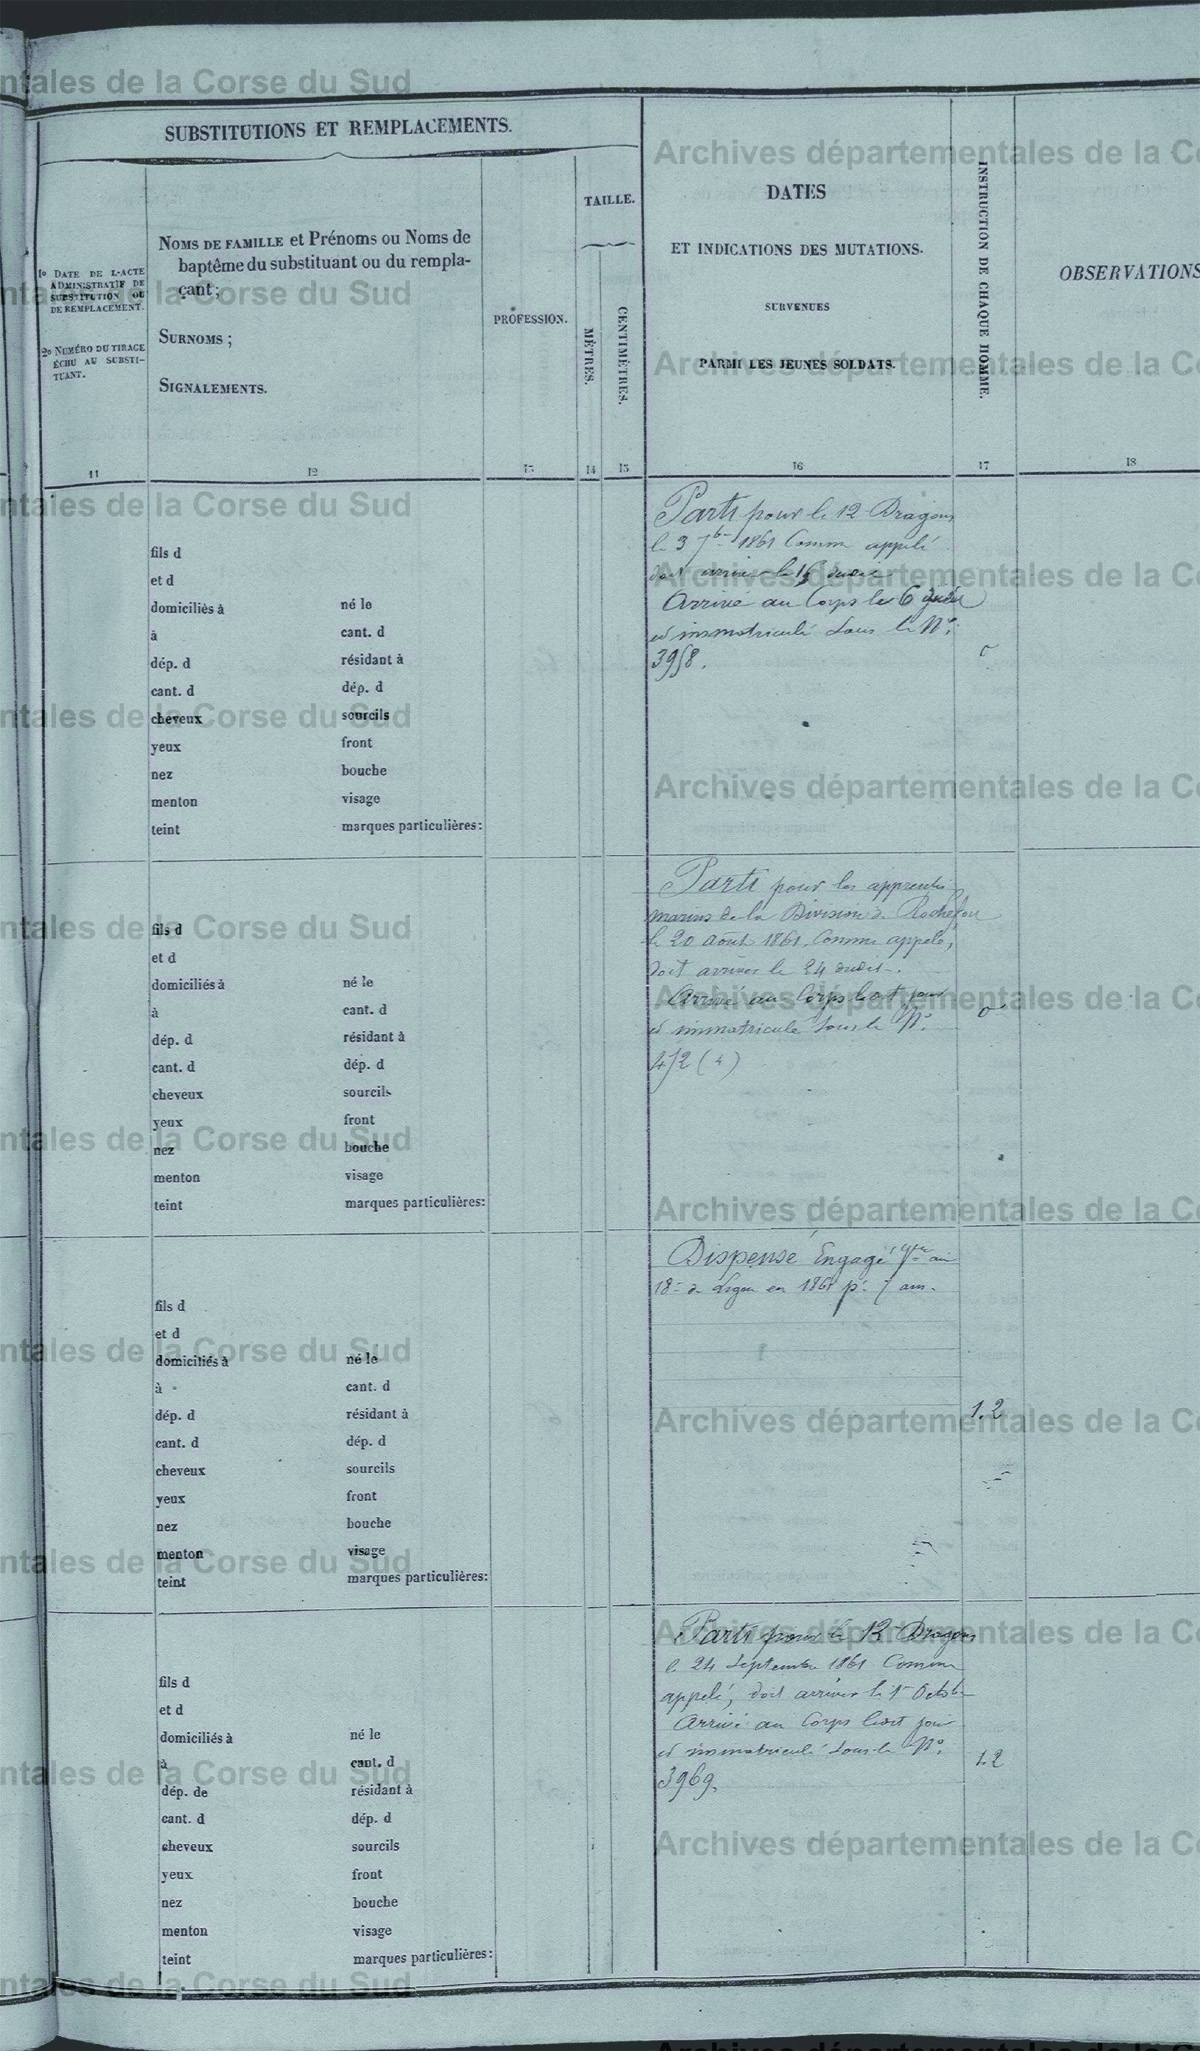 SUBSTITUTIONS ET REMPLACEMENTS.
1º DATE DE L'ACTE
ADMINISTRATIF DE
SUBSTITUTION OU
DE REMPLACEMENT.
2º NUMÉRO DU TIRAGE
ÉCHU AU SUBSTI-
TUANT.
NOMS DE FAMILLE et Prénoms ou Noms de
baptême du substituant ou du rempla-
çant;
SURNOMS;
SIGNALEMENTS.
PROFESSION.
TAILLE.
MÈTRES.
CENTIMÈTRES.
DATES
ET INDICATIONS DES MUTATIONS.
SURVENUES
PARMI LES JEUNES SOLDATS.
INSTRUCTION DE CHAQUE HOMME.
OBSERVATIONS
11 12 13 14 15 16 17 18
fils d
et d
domiciliés à né le
à cant. d
dép. d résidant à
cant. d dép. d
cheveux sourcils
yeux front
nez bouche
menton visage
teint marques particulières:
Parti pour le 12 Dragons
le 3 7bre 1861 Comme appelé
doit arriver le 16 dudit
Arrivé au Corps le 6
et immatriculé sous le Nº
3958.
fils d
et d
domiciliés à né le
à cant. d
dép. d résidant à
cant. d dép. d
cheveux sourcils
yeux front
nez bouche
menton visage
teint marques particulières:
Parti pour les apprentis
marins de la Division de Rochefort
le 20 août 1861. Comme appelé,
doit arriver le 24 dudit.
Arrivé au Corps ledit jour
et immatriculé sous le Nº
472 (4)
0
fils d
et d
domiciliés à né le
à cant. d
dép. d résidant à
cant. d dép. d
cheveux sourcils
yeux front
nez bouche
menton visage
teint marques particulières:
Dispensé Engagé Vre au
18e de Ligne en 1861 pr 7 ans.
1.2
fils d
et d
domiciliés à né le
à cant. d
dép. de résidant à
cant. d dép. d
cheveux sourcils
yeux front
nez bouche
menton visage
teint marques particulières:
Parti pour le 12 Dragons
le 24 Septembre 1861 Comme
appelé, doit arriver le 1er Octobre
Arrivé au Corps ledit jour
et immatriculé sous le Nº
3969.
1.2
Archives départementales de la Corse du Sud